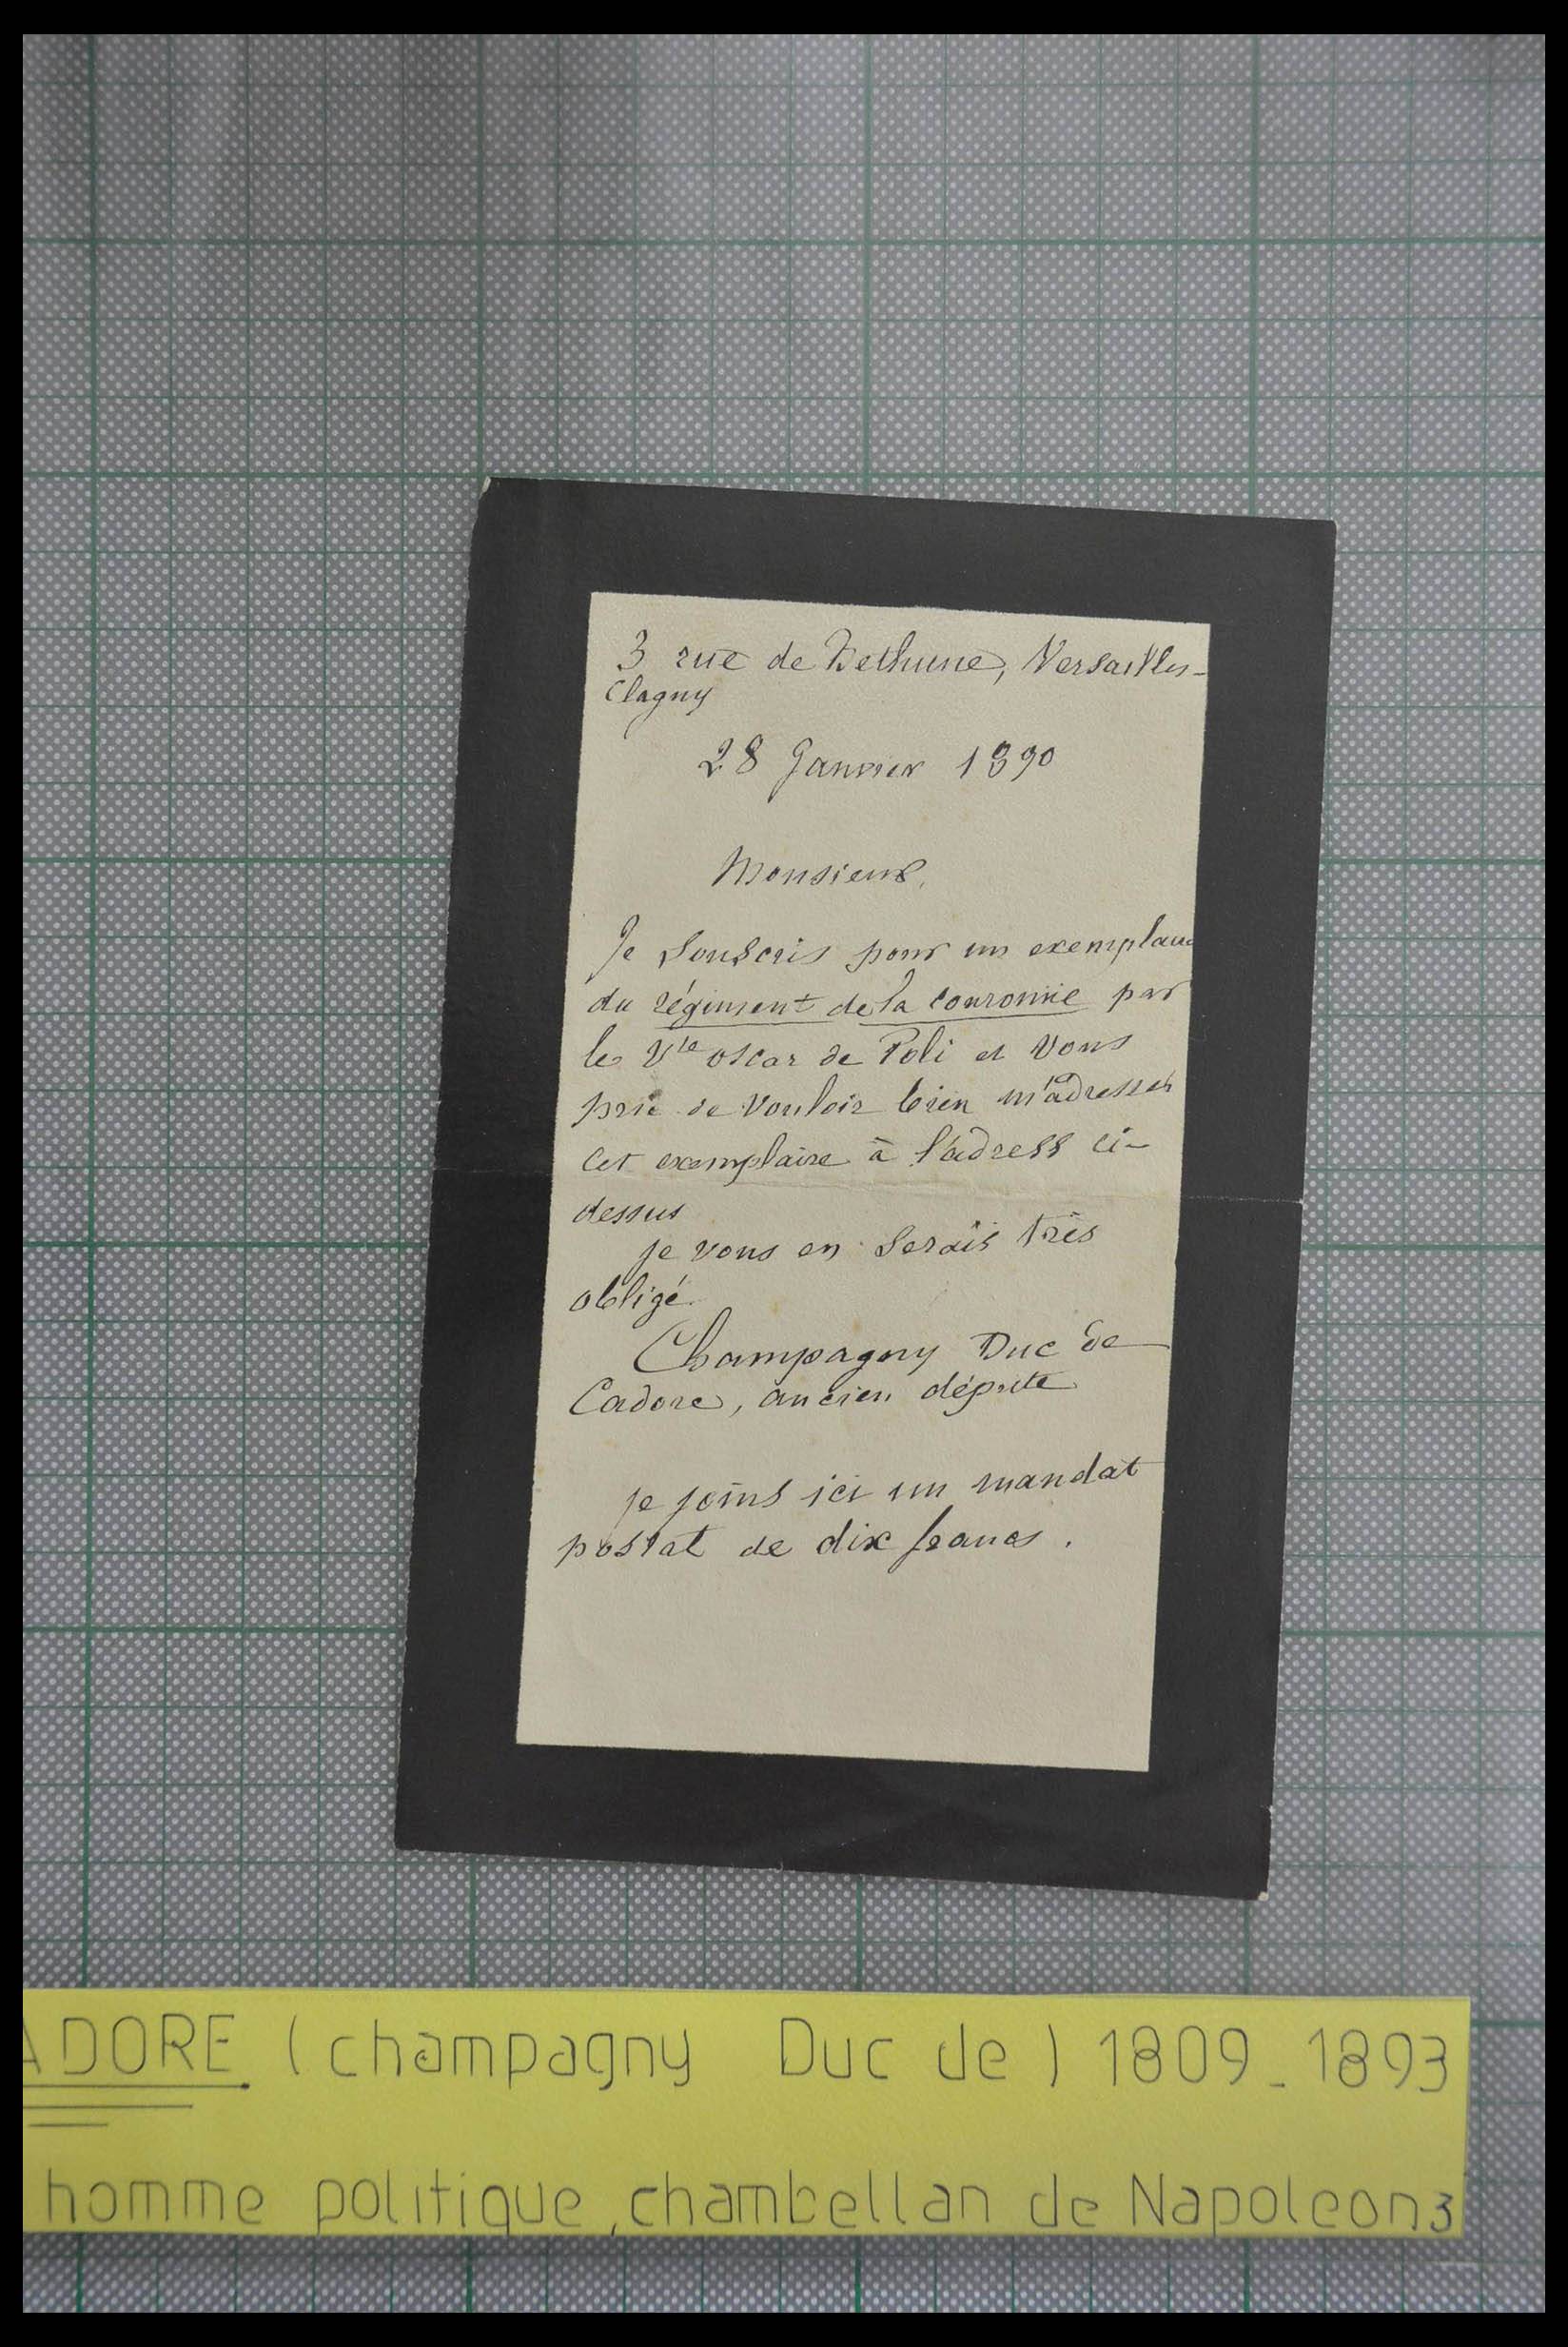 3 rue de Béthune, Versailles-
Clagny
28 Janvier 1890
Monsieur,
Je souscris pour un exemplaire
du régiment de la couronne par
le Vte oscar de Poli et vous
prie de vouloir bien m'adresser
cet exemplaire à l'adress ci-
dessus
je vous en serais très
obligé.
Champagny Duc de
Cadore, ancien député
je joins ici un mandat
postal de dix francs.
ADORE (champagny Duc de) 1809-1893
homme politique, chambellan de Napoleon 3